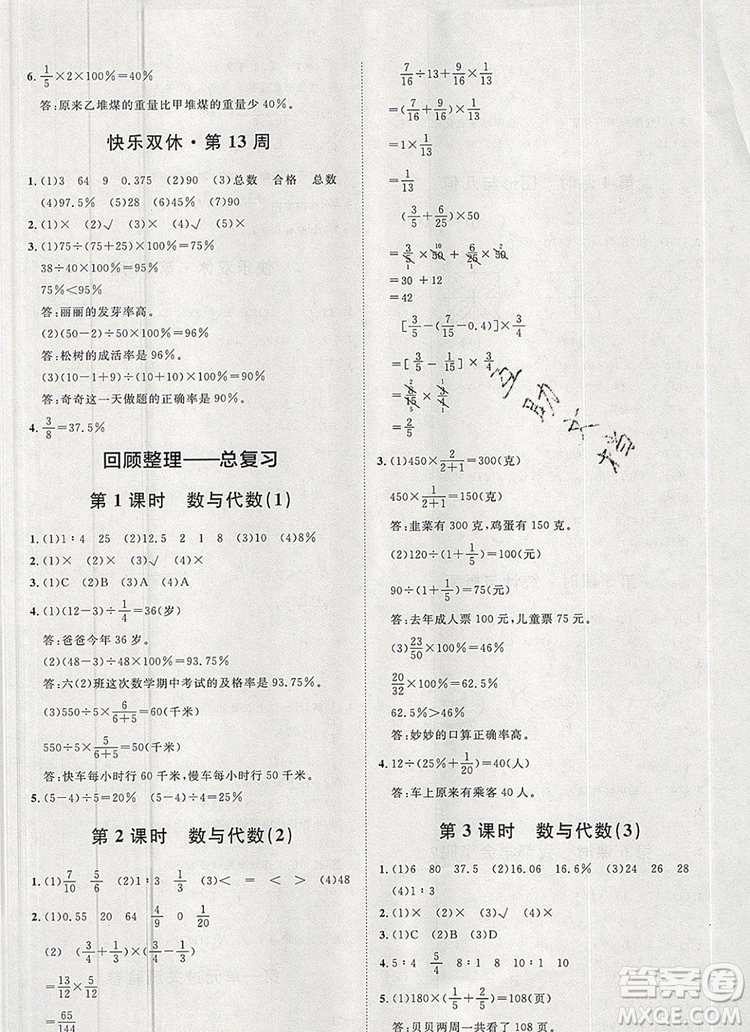 6. 1/5×2×100%=40%
答:原来乙堆煤的重量比甲堆煤的重量少 40%。
快乐双休·第 13 周
1. (1)3 64 9 0.375 (2)90 (3)总数 合格 总数
(4)97.5% (5)28 (6)45 (7)90
2. (1)× (2)√ (3)× (4)×
3. (1)75÷(75+25)×100%=75%
38÷40×100%=95%
75%<95%
答:丽丽的发芽率高。
(2)(50-2)÷50×100%=96%
答:松树的成活率是 96%。
(3)(10-1)÷10×100%=90%
答:奇奇这一天做题的正确率是 90%。
4. 3/8=37.5%
回顾整理——总复习
第 1 课时 数与代数(1)
1. (1)1∶4 25 (2)12.5 2 1∶8 (3)10 (4)8%
2. (1)× (2)× (3)√ (4)×
3. (1)C (2)B (3)A
4. (1)(12-3)÷1/4=36(岁)
答:爸爸今年 36 岁。
(2)(48-3)÷48×100%=93.75%
答:六(2)班这次数学期中考试的及格率是 93.75%。
(3)550÷5×6/(6+5)=60(千米)
550÷5×5/(6+5)=50(千米)
答:快车每小时行 60 千米,慢车每小时行 50 千米。
5. (5-4)÷5=20% (5-4)÷4=25%
第 2 课时 数与代数(2)
1. (1)7/10 5/6 (2)1∶3 1/3 (3)< = < > (4)48
2. (1)0.55 20 64 3/4 9/10 0 1/20
(2) (3/4+1/3)×(3/4-1/3)
=13/12×5/12
=65/144
7/16÷13+9/16×1/13
=(7/16+9/16)×1/13
=1×1/13
=1/13
(3/5+6/25)×50
=3/5×50+6/25×50
=30+12
=42
[3/5-(7/15-0.4)]×3/4
=[3/5-1/15]×3/4
=8/15×3/4
=2/5
3. (1)450×2/(2+1)=300(克)
450×1/(2+1)=150(克)
答:韭菜有 300 克,鸡蛋有 150 克。
(2)120÷(1+1/5)=100(元)
90÷(1+1/5)=75(元)
答:去年成人票 100 元,儿童票 75 元。
(3)23/50×100%=46%
20/32×100%=62.5%
62.5%>46%
答:妙妙的口算正确率高。
4. 12÷(25%+1/20)=40(人)
答:车上原来有乘客 40 人。
第 3 课时 数与代数(3)
1. (1)6 80 37.5 (2)16 16.6% (3)24 26 28
(4)1∶3
2. (1)× (2)× (3)√ (4)×
3. (1)C (2)B (3)D
4. 5∶4 8∶1 10∶1 9∶10
5. (1)90×(1+1/5)=108(页)
答:贝贝两周一共看了 108 页。
答案圈
MXQE.COM